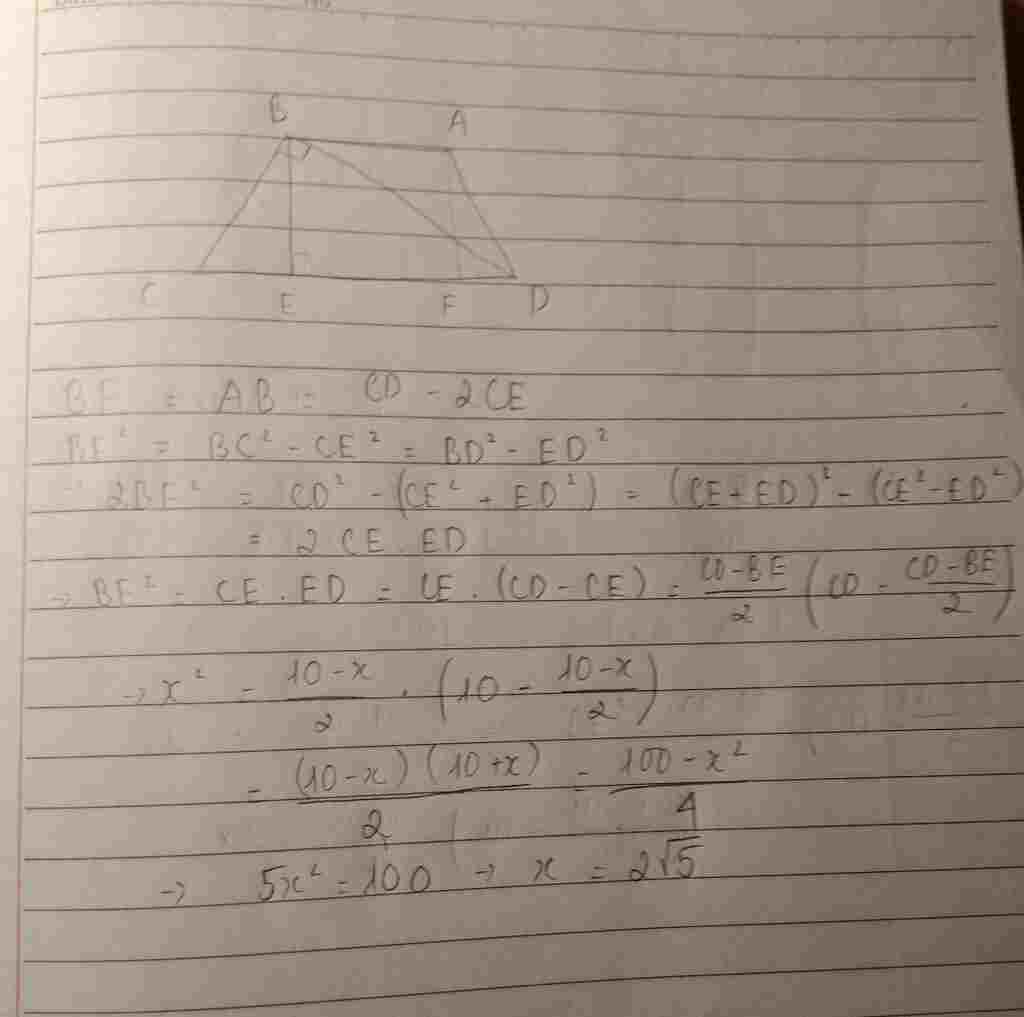 B A
C E F D
BE = AB = CD - 2CE
BE² = BC² - CE² = BD² - ED²
2BE² = CD² - (CE² + ED²) = (CE + ED)² - (CE² - ED²)
= 2 CE . ED
→ BE² = CE . ED = CE . (CD - CE) = \frac{CD - BE}{2} (CD - \frac{CD - BE}{2})
→ x² = \frac{10 - x}{2} . (10 - \frac{10 - x}{2})
= \frac{(10 - x)(10 + x)}{2} = \frac{100 - x²}{4}
→ 5x² = 100 → x = 2√5